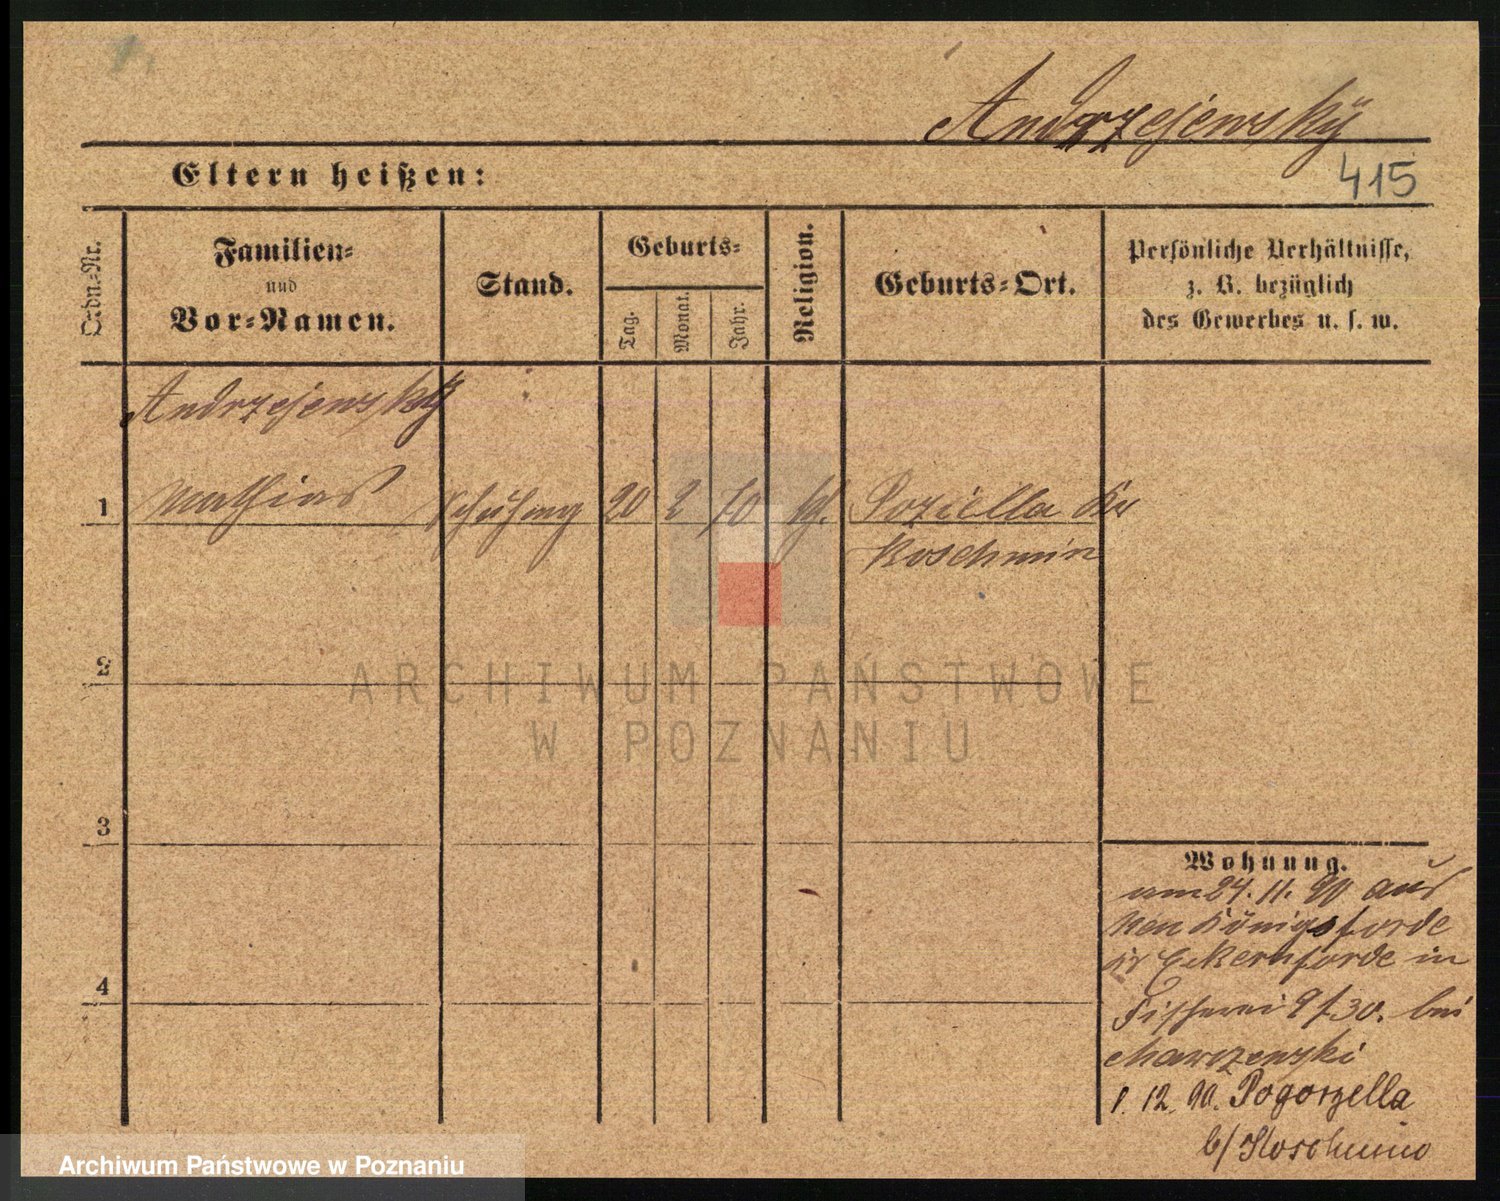 Andrzejewsky
Eltern heißen:
415
Ordn.-Nr.
Familien-
und
Vor-Namen.
Stand.
Geburts-
Tag.
Monat.
Jahr.
Religion.
Geburts-Ort.
Persönliche Verhältnisse,
z. B. bezüglich
des Gewerbes u. s. w.
Andrzejewsky
1 Mathias 20 2 70 kth. Poziella Kr
Koschmin
2
ARCHIWUM PAŃSTWOWE
W POZNANIU
3
4
Wohnung.
am 24. 11. 90 aus
Neu Königsforde
Kr Eckernforde in
Fischerei 9 / 30. bei
Marszewski
1. 12. 90. Pogorzella
b/ Koschmin
Archiwum Państwowe w Poznaniu